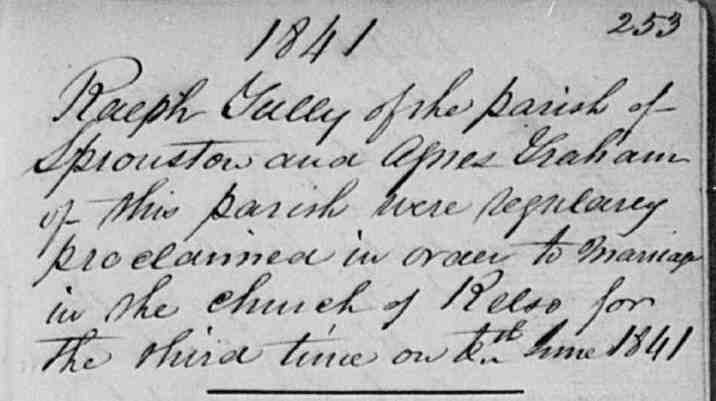 253
1841
Ralph Tully of the parish of
Sprouston and Agnes Graham
of this parish were regularly
proclaimed in order to Marriage
in the church of Kelso for
the third time on June 1841